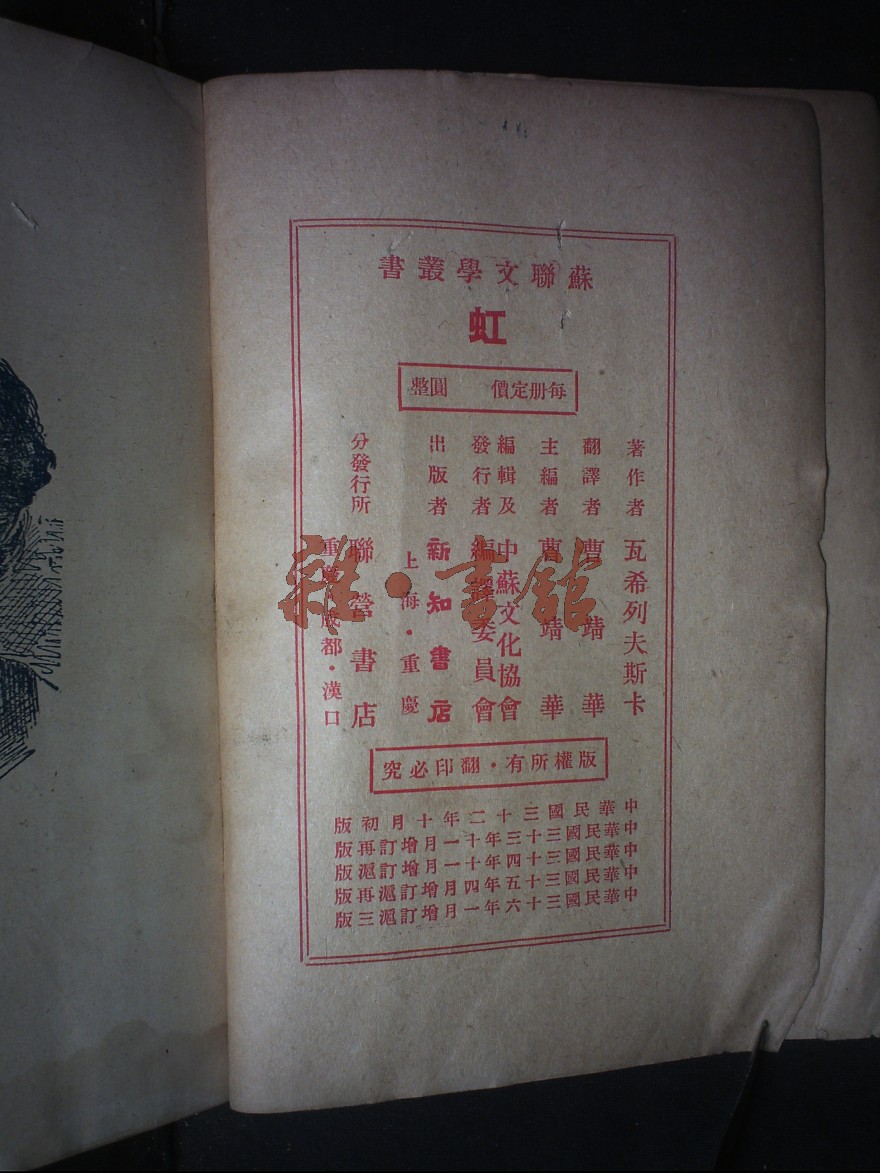 蘇聯文學叢書
虹
每册定價　圓整
著作者　瓦希列夫斯卡
翻譯者　曹靖華
主編者　曹靖華
編輯及　中蘇文化協會
發行者　編譯委員會
出版者　新知書店
上海·重慶
分發行所　聯營書店
重慶·成都·漢口
版權所有·翻印必究
中華民國三十二年十月初版
中華民國三十三年十一月增訂再版
中華民國三十四年十一月增訂滬版
中華民國三十五年四月增訂滬再版
中華民國三十六年一月增訂滬三版
雜·書館